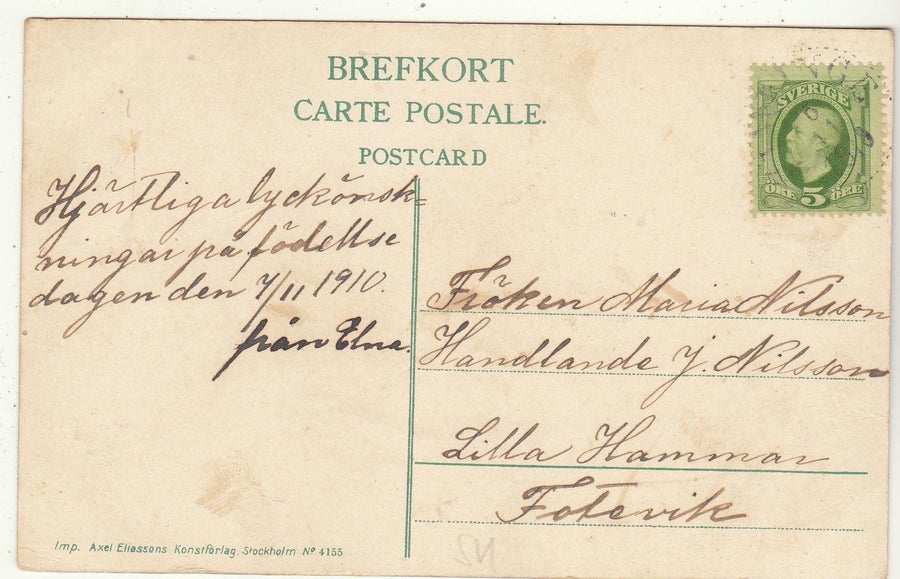 BREFKORT
CARTE POSTALE.
POSTCARD
SVERIGE
ÖRE 5 ÖRE
Hjärtliga lyckönsk-
ningar på födellse
dagen den 7/11 1910.
från Elna.
Fröken Maria Nilsson
Handlande J. Nilsson
Lilla Hammar
Fotevik
Imp. Axel Eliassons Konstförlag, Stockholm Nº 4155